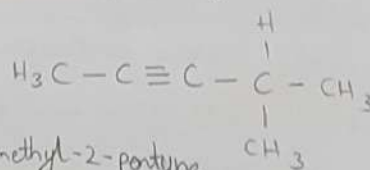 H
H₃C – C ≡ C – C – CH₃
CH₃
methyl-2-pentyne